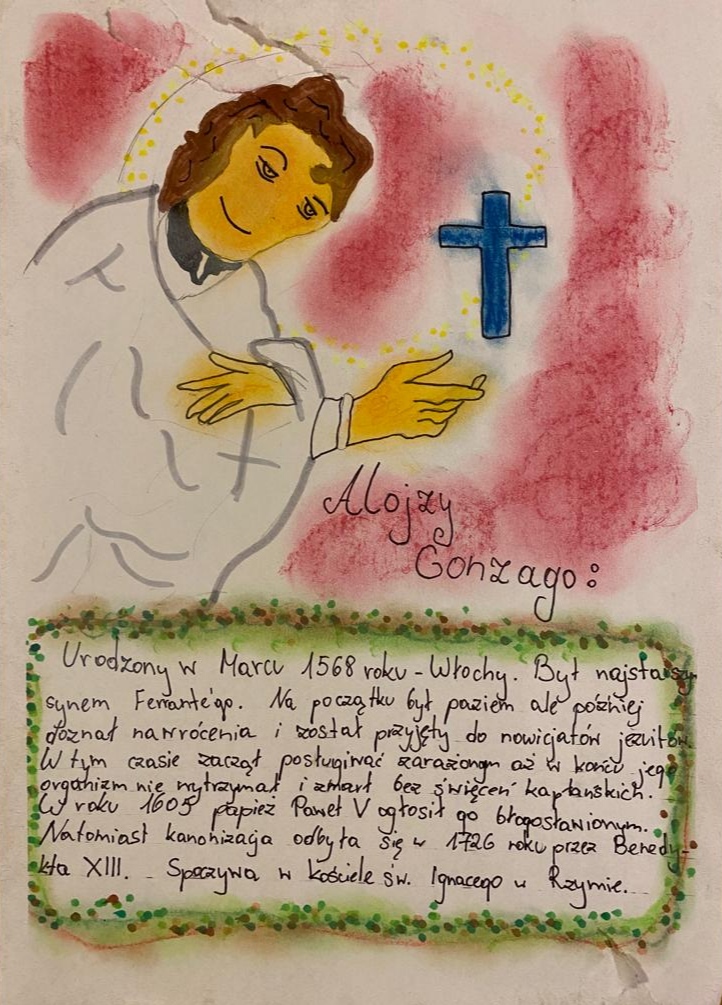 Alojzy
Gonzago:
Urodzony w Marcu 1568 roku - Włochy. Był najstarszym
synem Ferrante'go. Na początku był paziem ale później
doznał nawrócenia i został przyjęty do nowicjatów jezuitów.
W tym czasie zaczął posługiwać zarażonym aż w końcu jego
organizm nie wytrzymał i zmarł bez święceń kapłańskich.
W roku 1605 papież Paweł V ogłosił go błogosławionym.
Natomiast kanonizacja odbyła się w 1726 roku przez Benedy-
kta XIII. Spoczywa w kościele św. Ignacego w Rzymie.